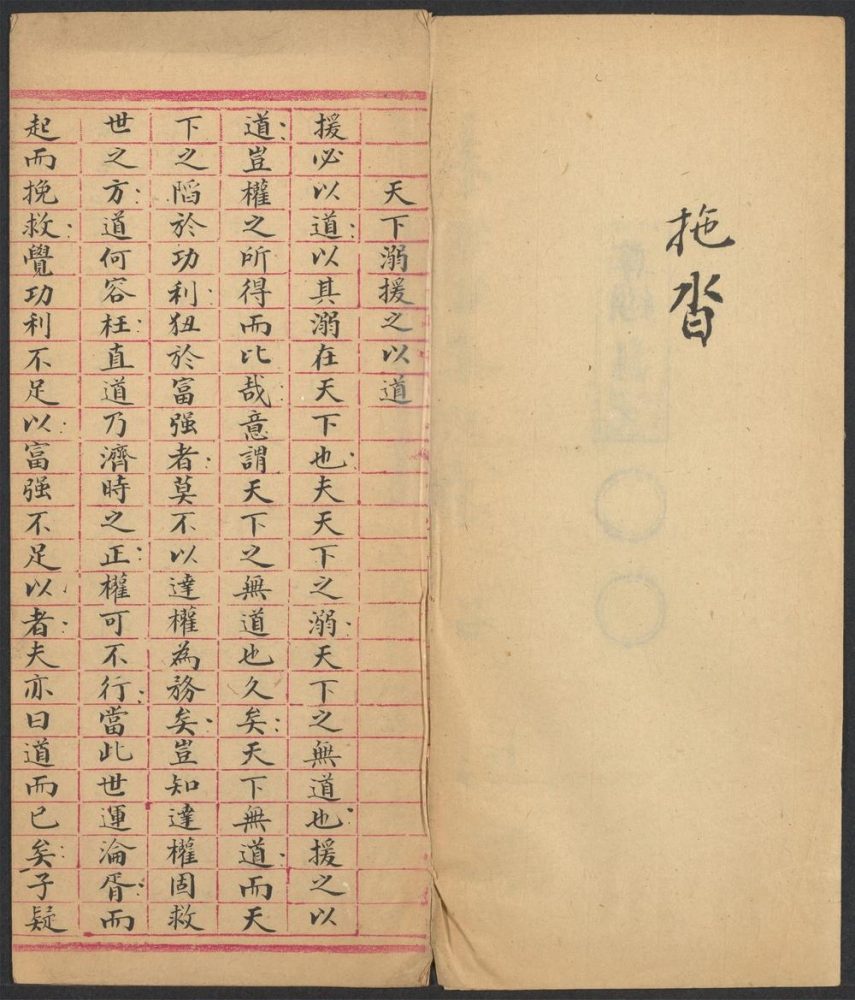 拖沓
天下溺援之以道
援必以道以其溺在天下也夫天下之溺天下之無道也援之以
道豈權之所得而比哉意謂天下之無道也久矣天下無道而天
下之陷於功利狃於富强者莫不以達權為務矣豈知達權固救
世之方道何容枉直道乃濟時之正權可不行當此世運淪胥而
起而挽救覺功利不足以富强不足以者夫亦曰道而已矣子疑